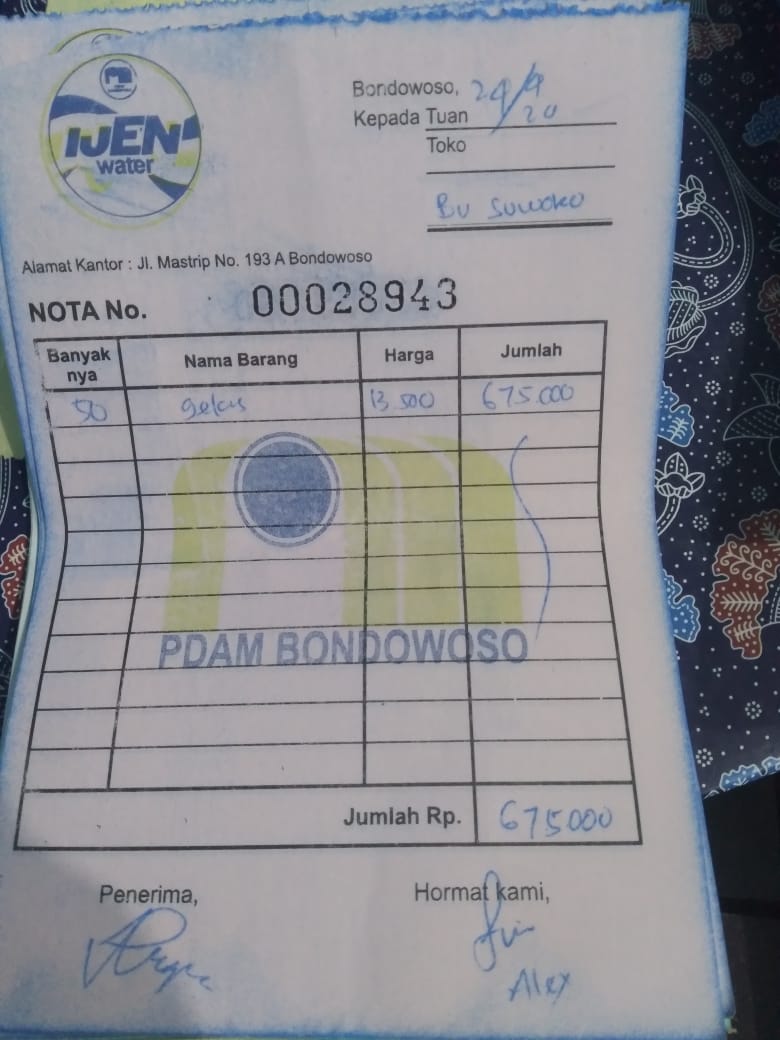 IJEN
water
Bondowoso, 29/9
Kepada Tuan 20
Toko
Bu Suwoko
Alamat Kantor : Jl. Mastrip No. 193 A Bondowoso
NOTA No. 00028943
Banyak nya Nama Barang Harga Jumlah
50 gelas 13.500 675.000
PDAM BONDOWOSO
Jumlah Rp. 675000
Penerima, Hormat kami,
Alex